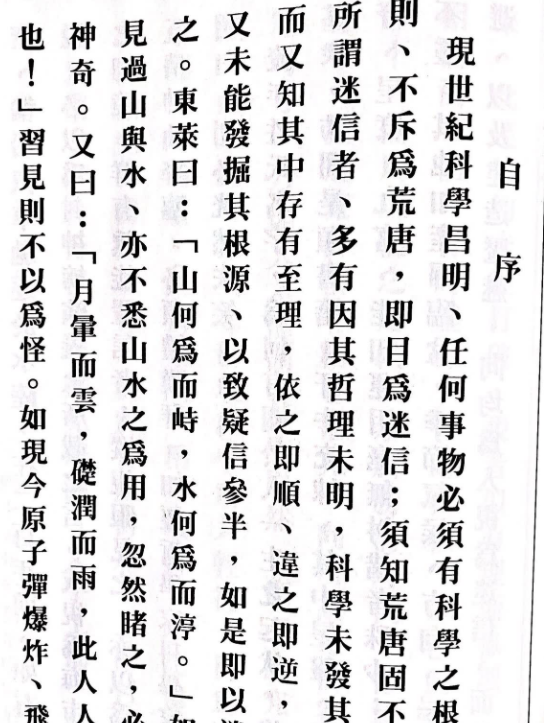 自序
現世紀科學昌明、任何事物必須有科學之根
則、不斥爲荒唐，即目爲迷信；須知荒唐固不
所謂迷信者、多有因其哲理未明，科學未發其
而又知其中存有至理，依之即順、違之即逆，
又未能發掘其根源、以致疑信參半，如是即以
之。東萊曰：「山何爲而峙，水何爲而渟。」
見過山與水、亦不悉山水之爲用，忽然睹之，必
神奇。又曰：「月暈而雲，礎潤而雨，此人人
也！」習見則不以爲怪。如現今原子彈爆炸、飛